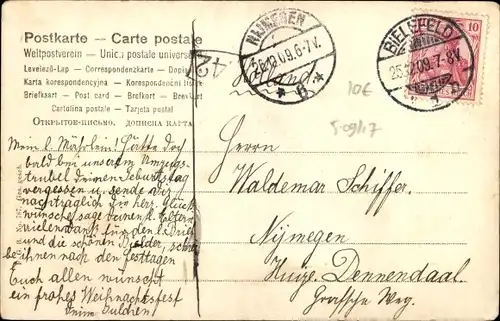 Postkarte - Carte postale
Weltpostverein - Union postale universelle
Levelező-Lap - Correspondenzkarte - Dopisnice
Karta korespondencyjna - Korespondenční lístek
Briefkaart - Post card - Brefkort - Brevkort
Cartolina postale - Tarjeta postal
Открытое письмо. Дописна карта
42
NIJMEGEN
26.12.09.6-7V.
BIELEFELD
25.12.09.7-8V.
10
10€
5.09/17
Holland
Mein l. Hätte dich
bald bei unserem Umzugs-
trubel deinen Geburtstag
vergessen u. sende dir
nachträglich die herz. Glück
wünsche, sage deinen l. Eltern
vielen Dank für den l. Brief
und die schönen Bilder, schrei
be ihnen nach den Festtagen
Euch allen wünscht
ein frohes Weihnachtsfest
Herrn
Waldemar Schiffer.
Nijmegen
Huize Dennendaal.
Weg.